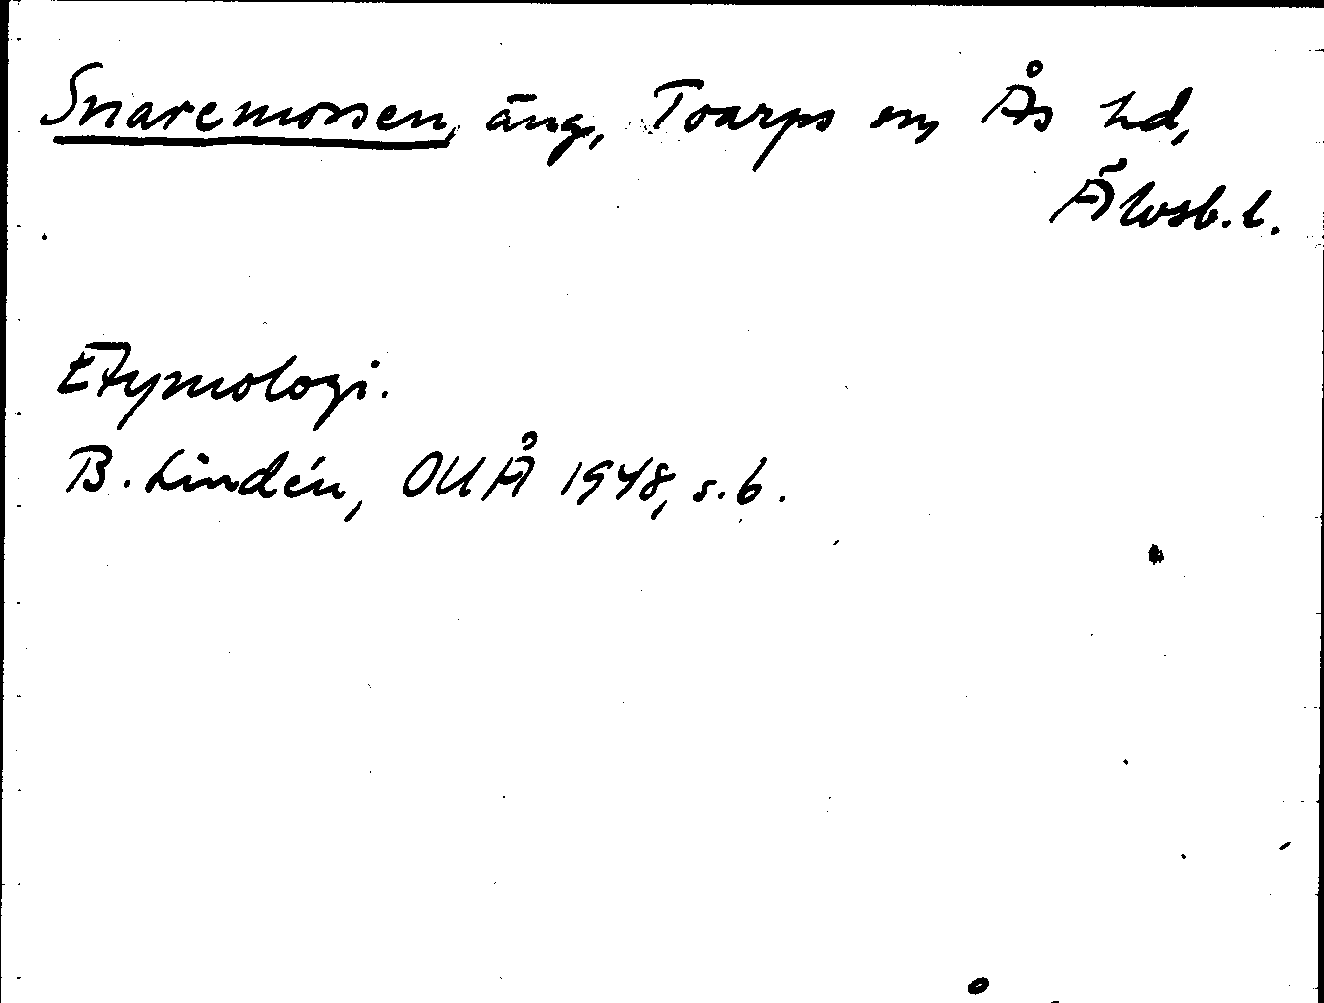 Snaremossen, äng, Toarps sn, Ås hd,
Älvsb. l.
Etymologi.
B. Lindén, OUÅ 1948, s. 6.